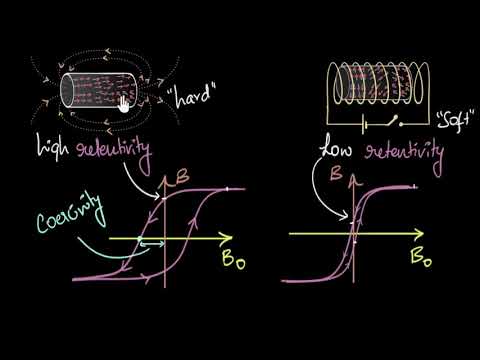 "hard"
"Soft"
high retentivity
Low retentivity
Coercivity
B
B₀
B
B₀